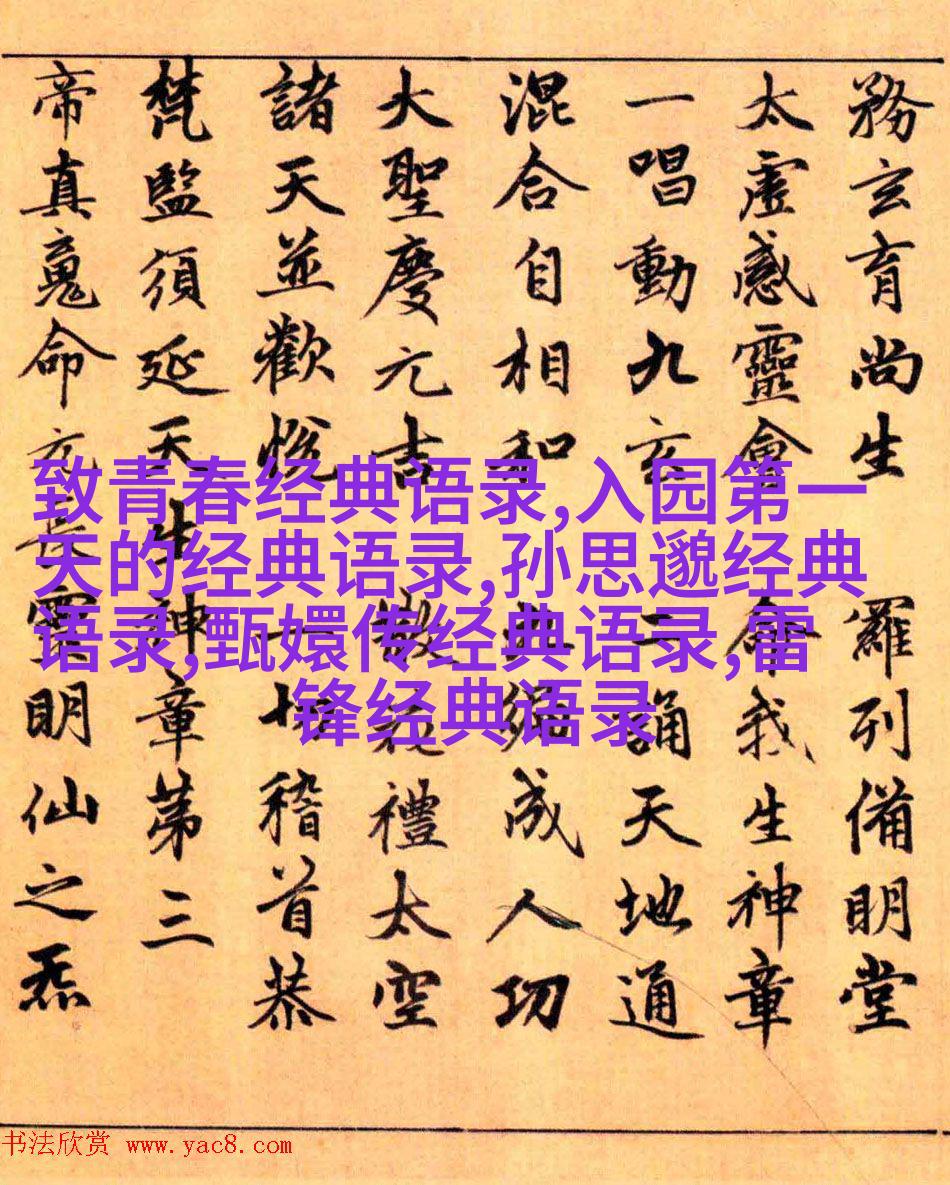 務玄育尚生 羅列備明堂
太虛感靈會 命我生神章
一唱動九玄 二誦天地通
混合自相和 成人功
大聖慶元吉 散花禮太空
諸天並歡悅 一切稽首恭
梵監須延天生神章第三
帝真䰟命元長靈明仙之炁
致青春经典语录,入园第一
天的经典语录,孙思邈经典
语录,甄嬛传经典语录,雷
锋经典语录
书法欣赏 www.yac8.com